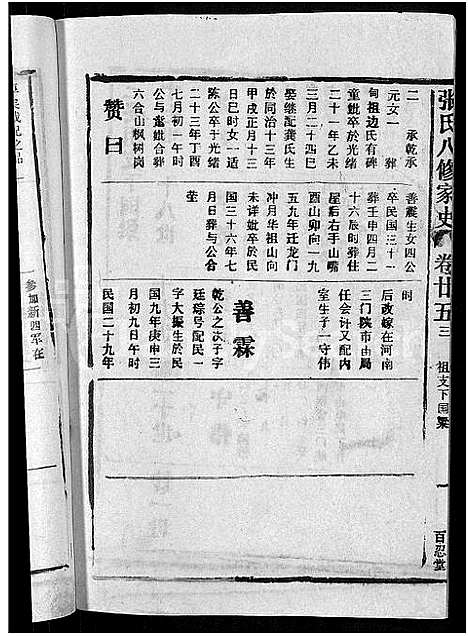 张氏八修家史
卷廿五
三
祖支下国梁
一
百忍堂
二 承乾承
元女一 葬
甸祖边氏有碑
童妣卒於光绪
二十一年乙未
三月二十四巳
娶继配龚氏生
於同治十三年
甲戌正月十三
日巳时女一适
陈公卒于光绪
二十三年丁酉
七月初一午时
公与童妣合葬
六合山枫树岗
赞曰
善震生女四公
卒民国三十一
葬壬申四月二
十六辰时葬于
屋后右手山嘴
酉山卯向一九
五九年迁龙门
冲月华祖山向
未详妣卒於民
国三十六年七
月日葬与公合
茔
时
后改嫁在河南
三门陕市由局
任会计又配内
室生子一守伟
善霖
乾公之次子字
廷琮号配民一
字大振生於民
国九年庚申三
月初九日午时
民国二十九年
参加新四军在